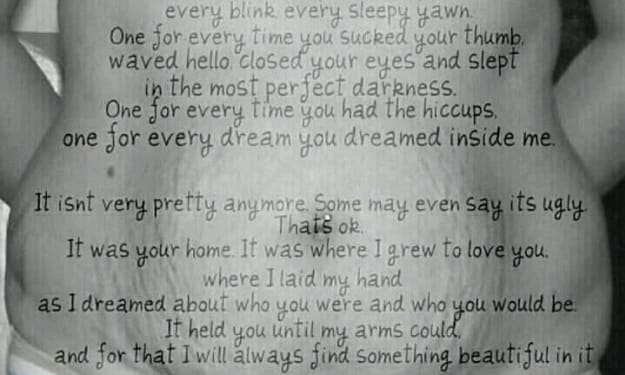 every blink, every sleepy yawn.
One for every time you sucked your thumb,
waved hello, closed your eyes and slept
in the most perfect darkness.
One for every time you had the hiccups,
one for every dream you dreamed inside me.
It isnt very pretty anymore. Some may even say its ugly.
Thats ok.
It was your home. It was where I grew to love you,
where I laid my hand
as I dreamed about who you were and who you would be.
It held you until my arms could,
and for that I will always find something beautiful in it